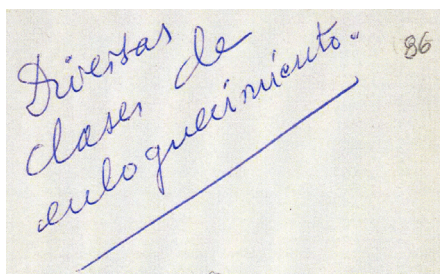 Diversas
clases de
enloquecimiento.
86